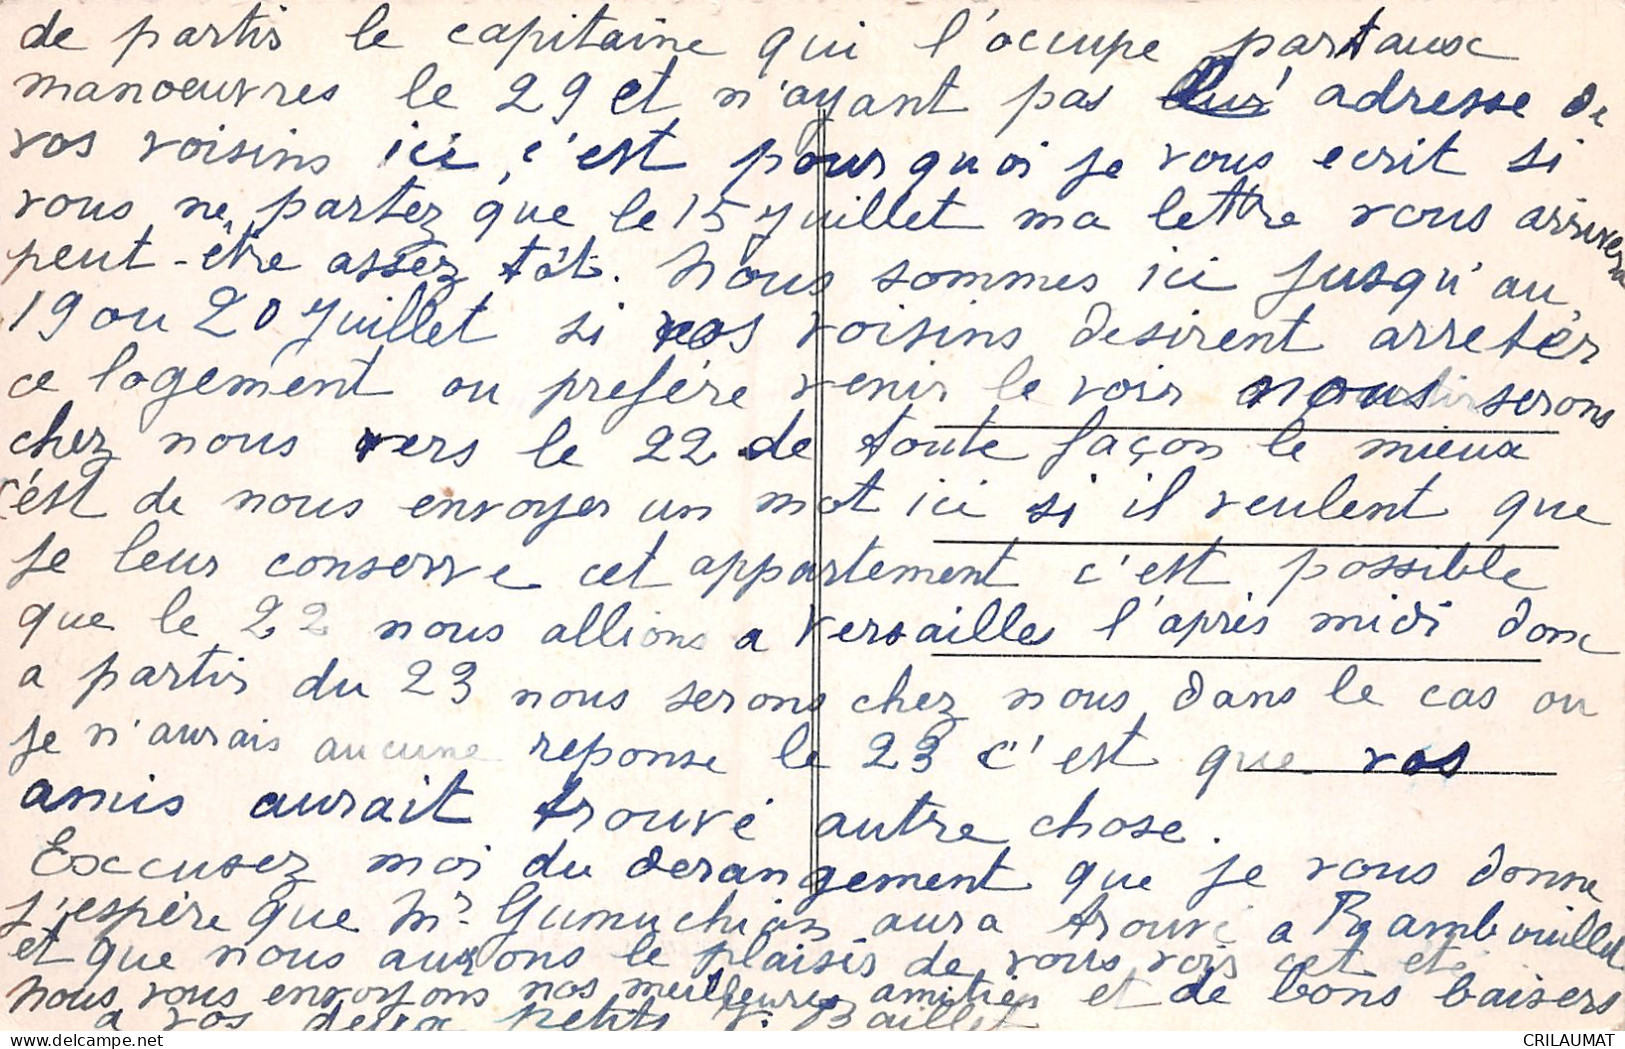 de partir le capitaine qui l'occupe part aux
manoeuvres le 29 et n'ayant pas adresse de
vos voisins ici, c'est pourquoi je vous ecrit si
vous ne partez que le 15 Juillet ma lettre vous arrivera
peut-être assez tôt. Nous sommes ici jusqu'au
19 ou 20 Juillet si vos voisins desirent arretér
ce logement ou prefére venir le voir nous serons
chez nous vers le 22 de toute façon le mieux
c'est de nous envoyer un mot ici si il veulent que
je leur conserve cet appartement c'est possible
que le 22 nous allions a Versailles l'après midi donc
a partir du 23 nous serons chez nous dans le cas ou
je n'aurais aucune reponse le 23 c'est que vos
amis aurait trouvé autre chose.
Exccusez moi du derangement que je vous donne
j'espère que Mr Gumuchian aura trouvé a Rambouillet
et que nous aurons le plaisir de vous voir cet eté
Nous vous envoyons nos meilleures amitiés et de bons baisers
a vos deux petits V. Baillet
delcampe.net
CRILAUMAT